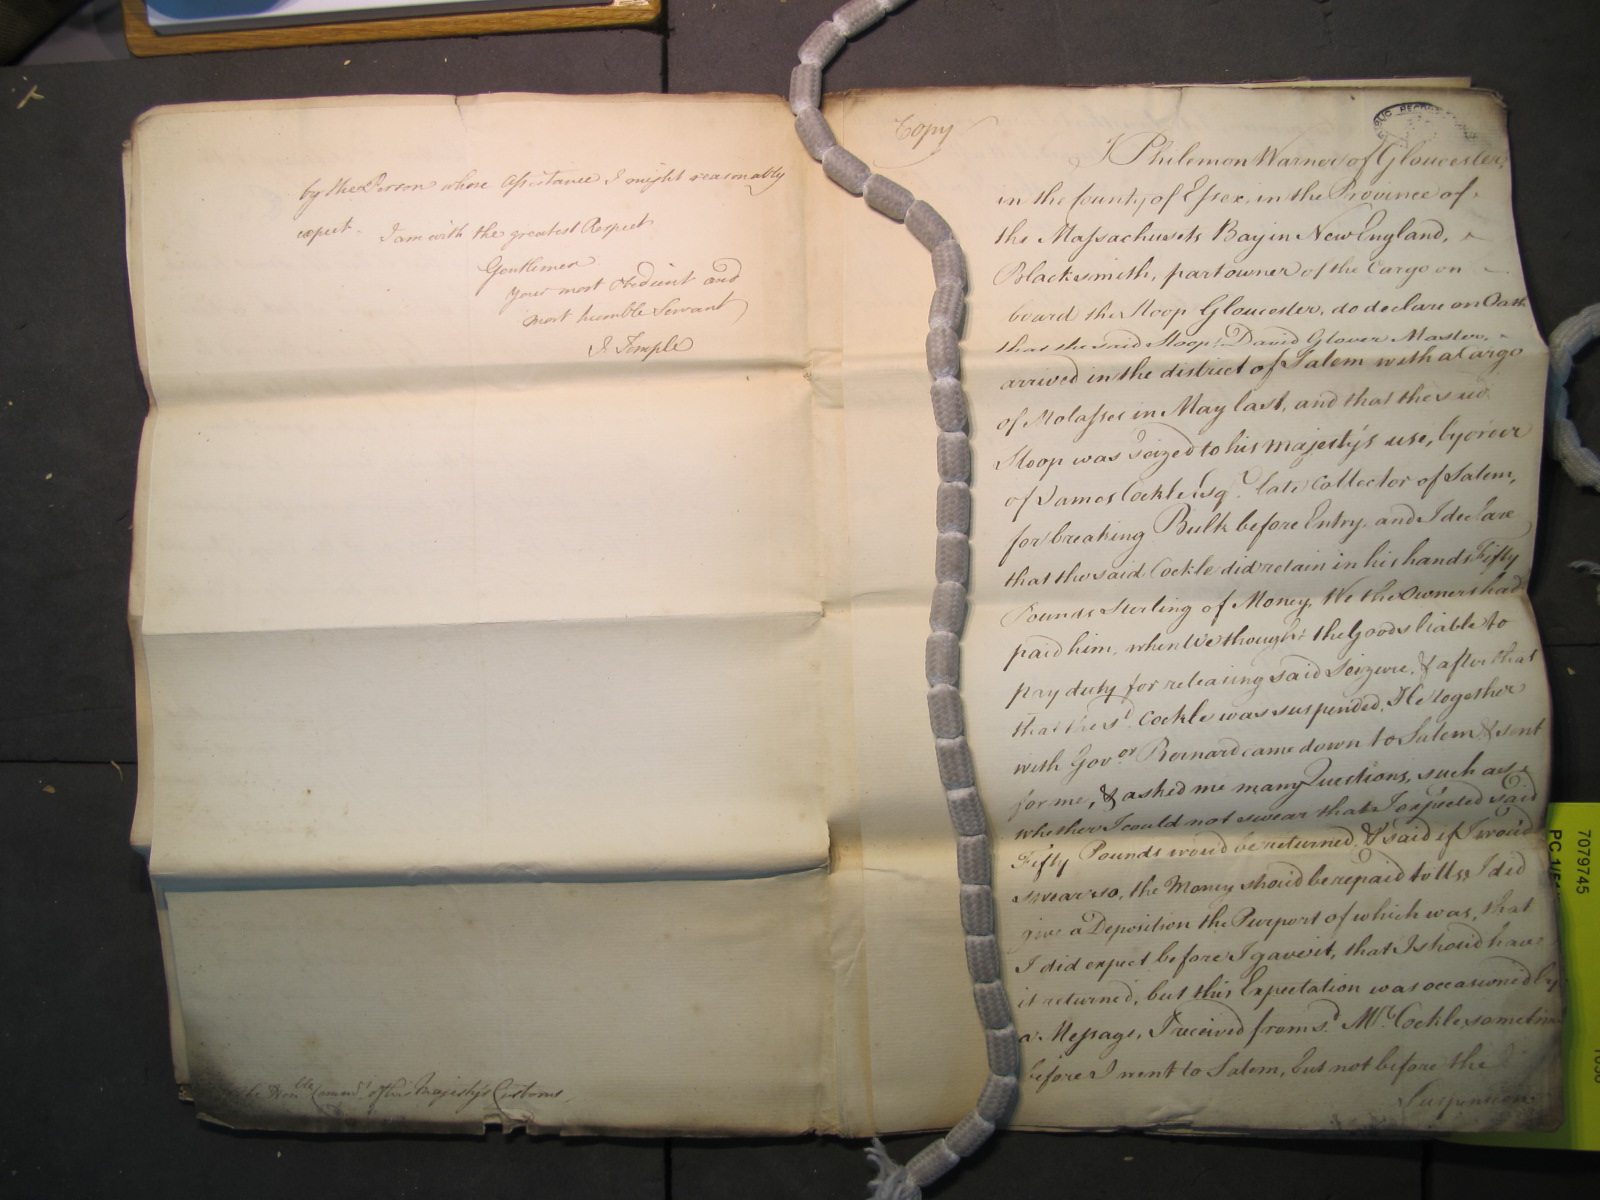 by the Person whose Assistance I might reasonably
expect. I am with the greatest Respect
Gentlemen
Your most obedient and
most humble Servant
J. Temple
the Hon.ble Comm.rs of his Majesty's Customs
Copy
PUBLIC RECORD
I Philemon Warner of Gloucester,
in the County of Essex, in the Province of
the Massachusets Bay in New England,
Blacksmith, part owner of the Cargo on
board the Sloop Gloucester, do declare on Oath
that the said Sloop, David Glover Master,
arrived in the district of Salem with a Cargo
of Molasses in May last, and that the said
Sloop was Seized to his majesty's use, by order
of James Cockle Esq.r late Collector of Salem,
for breaking Bulk before Entry, and I declare
that the said Cockle did retain in his hands Fifty
Pounds Sterling of Money, We the Owners had
paid him, when We thought the Goods liable to
pay duty for releasing said Seizure, & after that
that the s.d Cockle was suspended, He together
with Gov.or Bernard came down to Salem & sent
for me, & asked me many Questions, such as
whether I could not swear that I expected said
Fifty Pounds wou'd be returned, & said if I wou'd
swear so, the Money shou'd be repaid to Us, I did
give a Deposition the Purport of which was, that
I did expect before I gave it, that I shou'd have
it returned, but this Expectation was occasioned by
a Message, I received from s.d M.r Cockle sometime
before I went to Salem, but not before the
Suspension.
7079745
PC 1/5